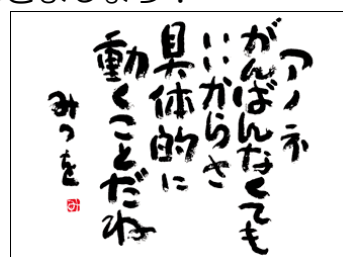 きましょう！
アノネ
がんばんなくても
いいからさ
具体的に
動くことだね
みつを